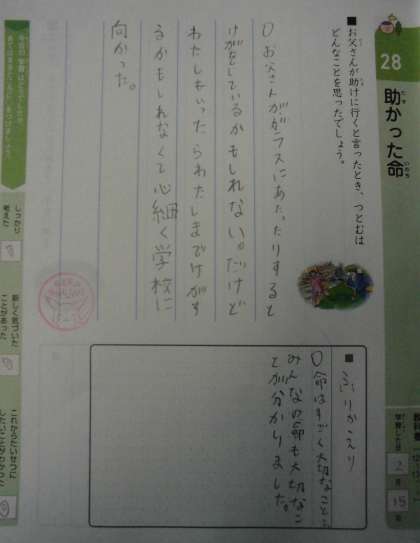 28
助かった命
■お父さんが助けに行くと言ったとき、つとむは
どんなことを思ったでしょう。
○お父さんがガラスにあたったりすると
けがをしているかもしれない。だけど
わたしもいったらわたしまでけがす
るかもしれなくて心細く学校に
向かった。
■ふりかえり
○命はすごく大切なことと
みんなの命も大切なこ
とが分かりました。
学習した日
2月
15日
しっかり
考えた
新しく気づいた
ことがあった
これからたいせつに
したいことがわかった